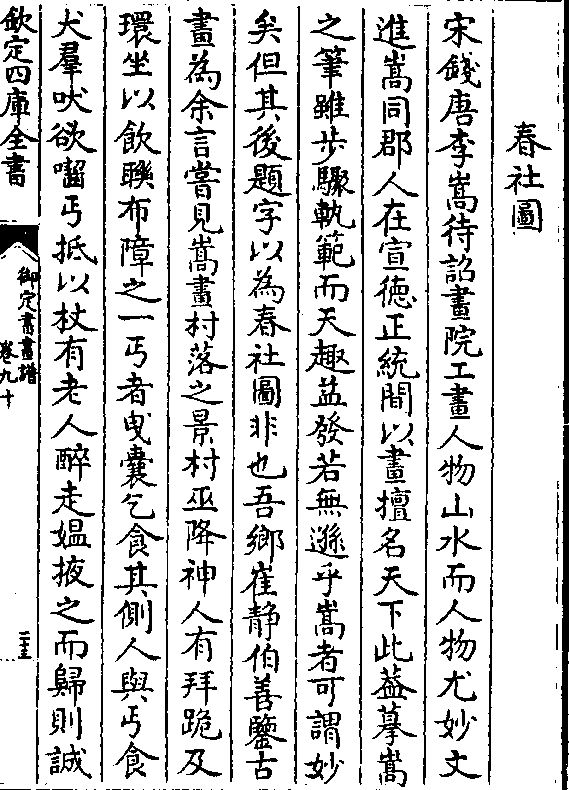 春社圖
宋錢唐李嵩待詔畫院工畫人物山水而人物尤妙文
進嵩同郡人在宣德正統間以畫擅名天下此葢摹嵩
之筆雖步驟軌範而天趣益發若無遜乎嵩者可謂妙
矣但其後題字以為春社圖非也吾鄉崔静伯善鑒古
畫為余言嘗見嵩畫村落之景村巫降神人有拜跪及
環坐以飲聯布障之一丐者曳囊乞食其側人與丐食
犬羣吠欲囓丐抵以杖有老人醉走媪掖之而歸則誠
欽定四庫全書
御定書畫譜
卷九十
二十五